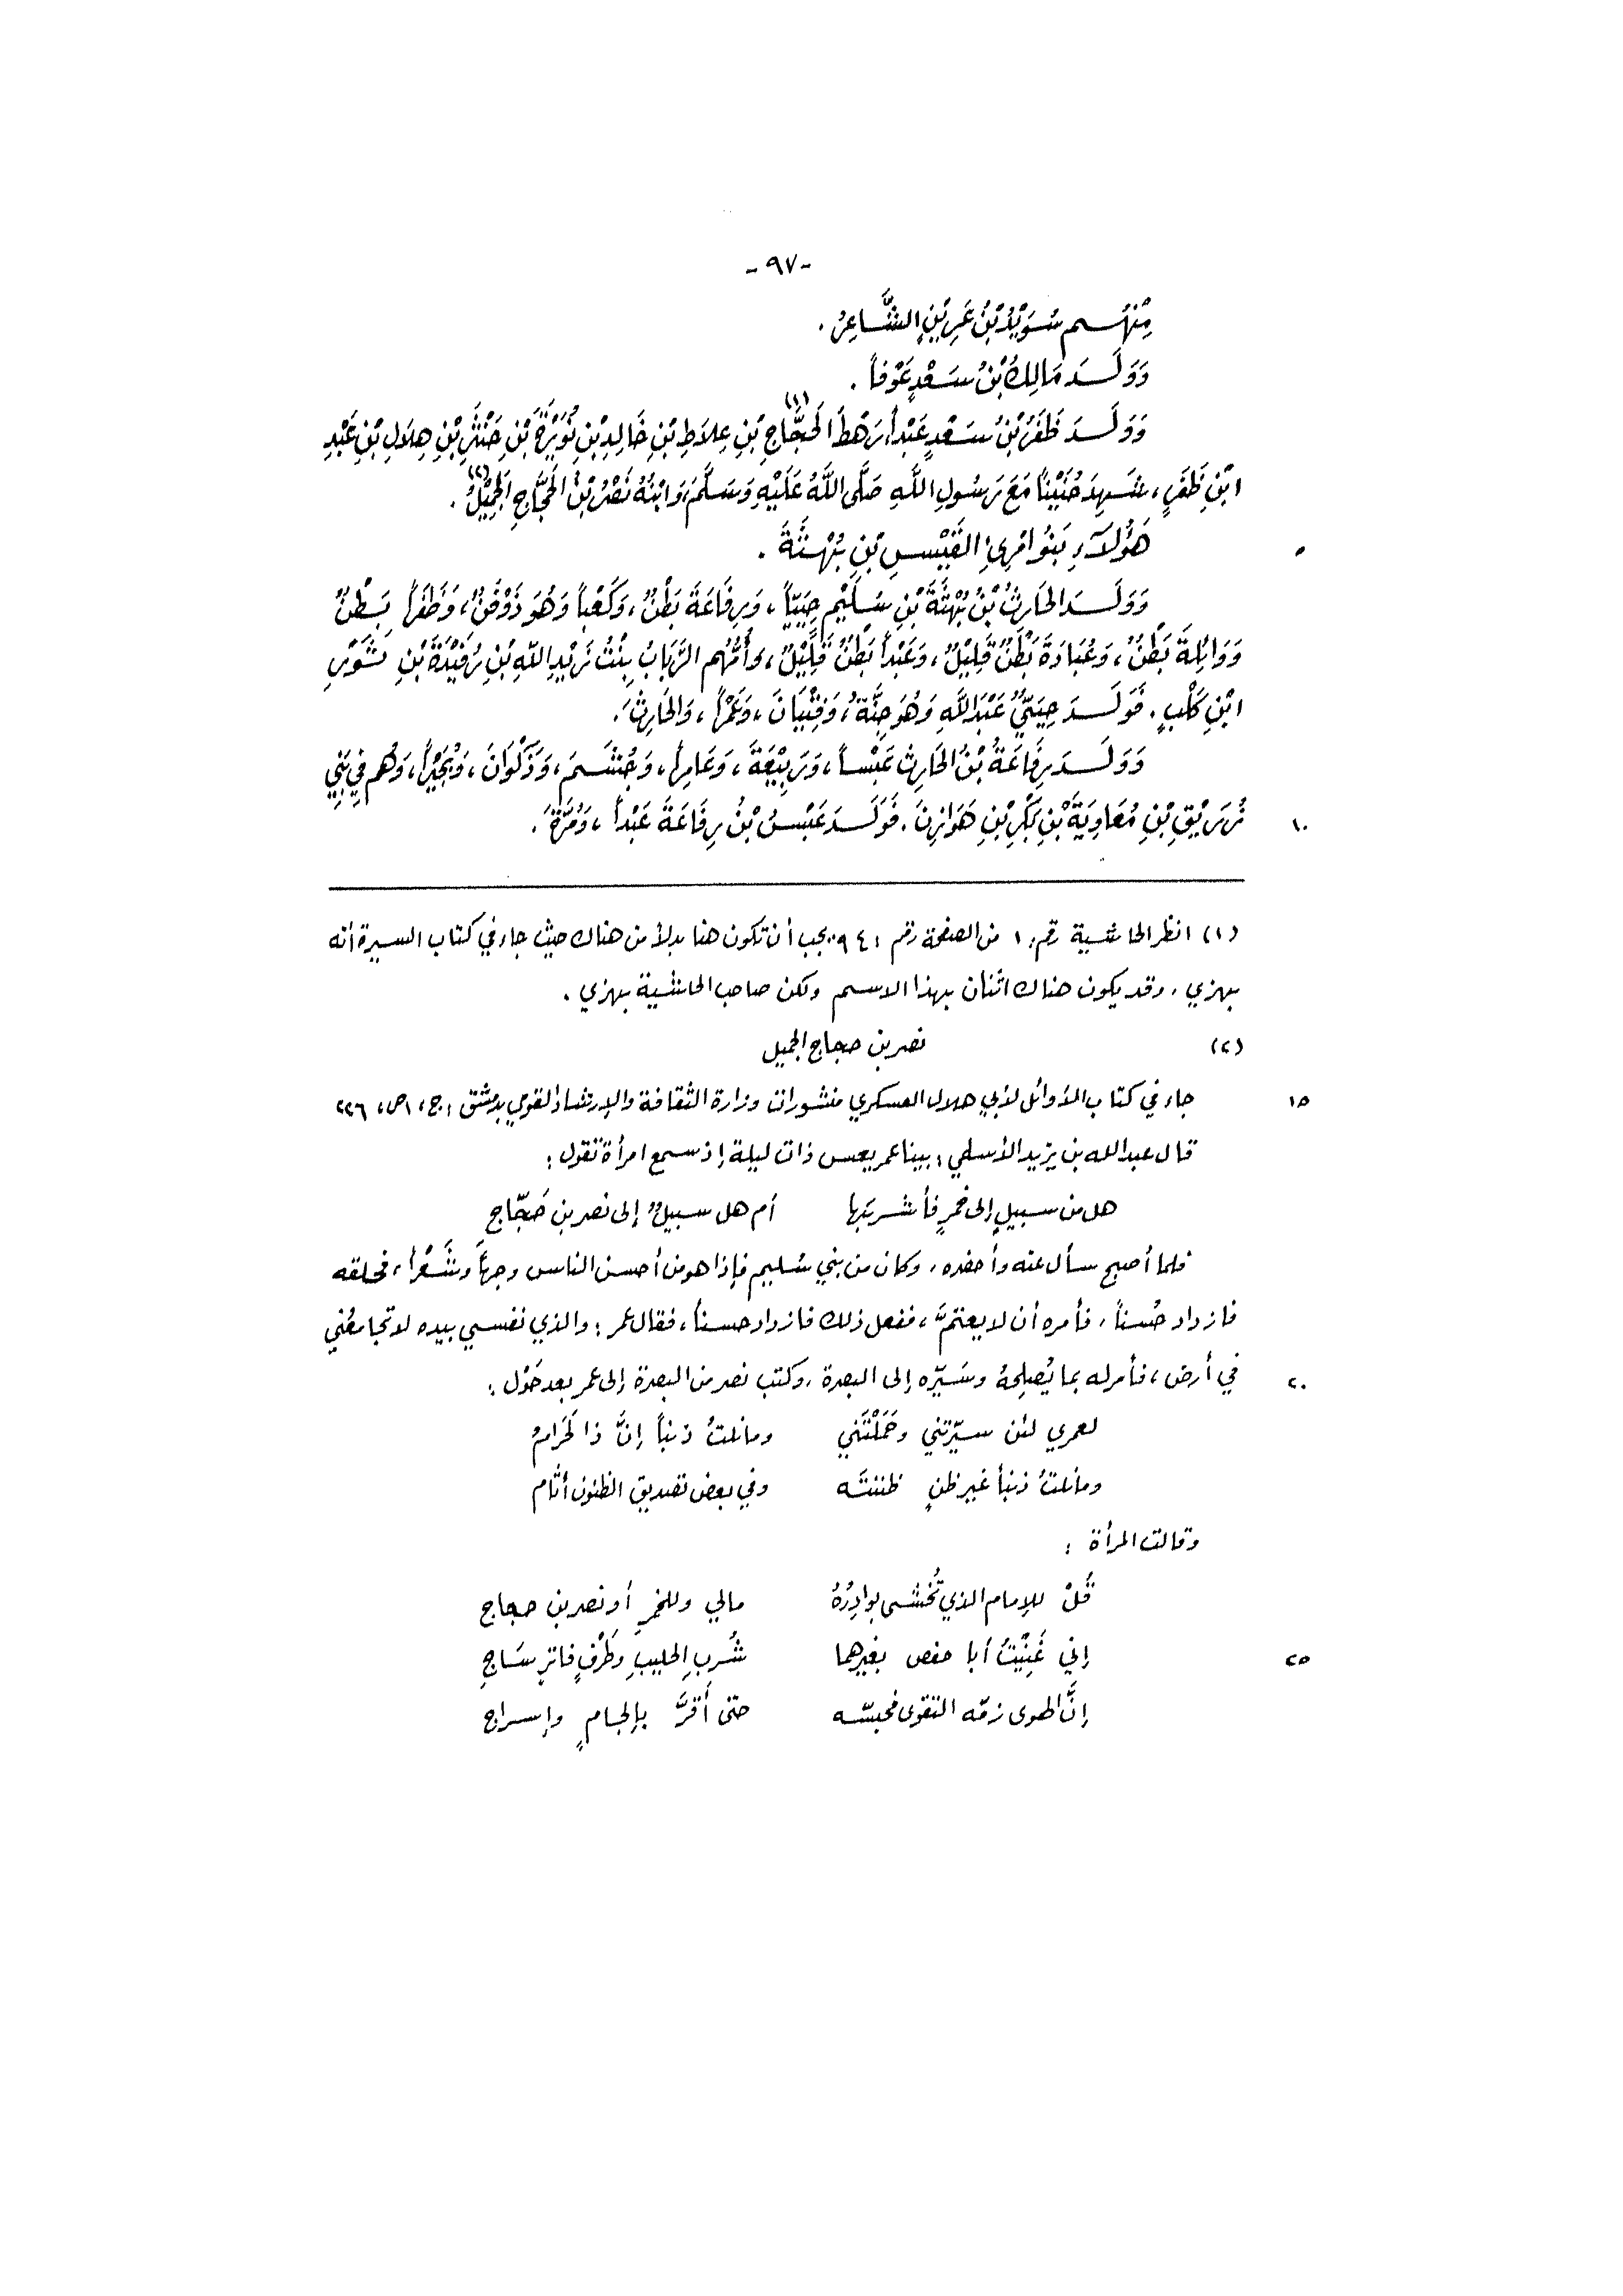 -٩٧-
مِنْهُم سُوَيْدُ بْنُ عُمَيْرِ بْنِ الشَّاعِرُ.
وَوَلَدَ مَالِكُ بْنُ سَعْدٍ عَوْفاً.
وَوَلَدَ ظَفَرُ بْنُ سَعْدٍ عَبْداً رَهْطَ الحَجَّاجِ (١) بْنِ عِلاَطِ بْنِ خَالِدِ بْنِ نُوَيْرَةَ بْنِ حَنْثَرِ بْنِ هِلاَلِ بْنِ عَبْدِ
ابْنِ ظَفَرٍ، شَهِدَ حُنَيْناً مَعَ رَسُولِ اللَّهِ صَلَّى اللَّهُ عَلَيْهِ وَسَلَّمَ، وَابْنُهُ نَصْرُ بْنُ الحَجَّاجِ الجَمِيْلُ (٢).
هَؤُلاَءِ بَنُو امْرِئِ القَيْسِ بْنِ بُهْثَةَ. ٥
وَوَلَدَ الحَارِثُ بْنُ بُهْثَةَ بْنِ سُلَيْمٍ حِيَيّاً، وَرِفَاعَةَ بَطْنٌ، وَكَعْباً وَهُوَ ذَوْفَنُ، وَظَفَراً بَطْنٌ
وَوَائِلَةَ بَطْنٌ، وَعُبَادَةَ بَطْنٌ قَلِيْلٌ، وَعَبْداً بَطْنٌ قَلِيْلٌ، وَأُمُّهُم الرَّبَابُ بِنْتُ زَيْدِ اللَّهِ بْنِ رُفَيْدَةَ بْنِ ثَوْرِ
ابْنِ كَلْبٍ. فَوَلَدَ حِيَيُّ عَبْدَ اللَّهِ وَهُوَ جِنَّةُ، وَفِتْيَانَ، وَعَمْراً، وَالحَارِثَ.
وَوَلَدَ رِفَاعَةُ بْنُ الحَارِثِ عَبْساً، وَرَبِيْعَةَ، وَعَامِراً، وَجُشَمَ، وَذَكْوَانَ، وَبُجَيْراً، وَهُم فِي بَنِي
زُرَيْقِ بْنِ مُعَاوِيَةَ بْنِ بَكْرِ بْنِ هَوَازِنَ. فَوَلَدَ عَبْسُ بْنُ رِفَاعَةَ عَبْداً، وَمُرَّةَ. ١٠
(١) انظر الحاشية رقم: ١ من الصفحة رقم: ٩٤ يجب أن تكون هنا بدلاً من هناك حيث جاء في كتاب السيرة أنه
بهزي، وقد يكون هناك اثنان بهذا الاسم ولكن صاحب الحاشية بهزي.
(٢) نصر بن حجاج الجميل
جاء في كتاب الأوائل لأبي هلال العسكري منشورات وزارة الثقافة والإرشاد القومي بدمشق: ج، ١ ص، ٢٢٦ ١٥
قال عبد الله بن يزيد الأسلمي: بينا عمر يعس ذات ليلة إذ سمع امرأة تقول:
هل من سبيلٍ إلى خمرٍ فأشربَها أم هل سبيلٌ إلى نصر بنِ حَجّاجِ
فلما أصبح سأل عنه وأحضره، وكان من بني سُليم فإذا هو من أحسن الناس وجهاً وشَعْراً، فحلقه
فازداد حُسناً، فأمره أن لا يعتمَّ، ففعل ذلك فازداد حسناً، فقال عمر: والذي نفسي بيده لا تجامعُني
في أرض، فأمر له بما يُصلِحهُ وسَيّره إلى البصرة، وكتب نصر من البصرة إلى عمر بعد حَوْل: ٢٠
لعمري لئن سيّرتني وحَمَلْتَني وما نلتُ ذنباً إنَّ ذا لَحَرامُ
وما نلتُ ذنباً غير ظنٍ ظننتَه وفي بعض تصديق الظنون أثام
وقالت المرأة:
قُلْ للإمام الذي تُخشى بوادِرُهُ مالي وللخمرِ أو نصر بن حجاج
إني غَنِيْتُ أبا حفص بغيرهما شُربِ الحليبِ وطَرْفٍ فاترٍ سَاجِ ٢٥
إنَّ الهوى زمّه التقوى فحبسّه حتى أَقرَّ بإلجامٍ وإسراج